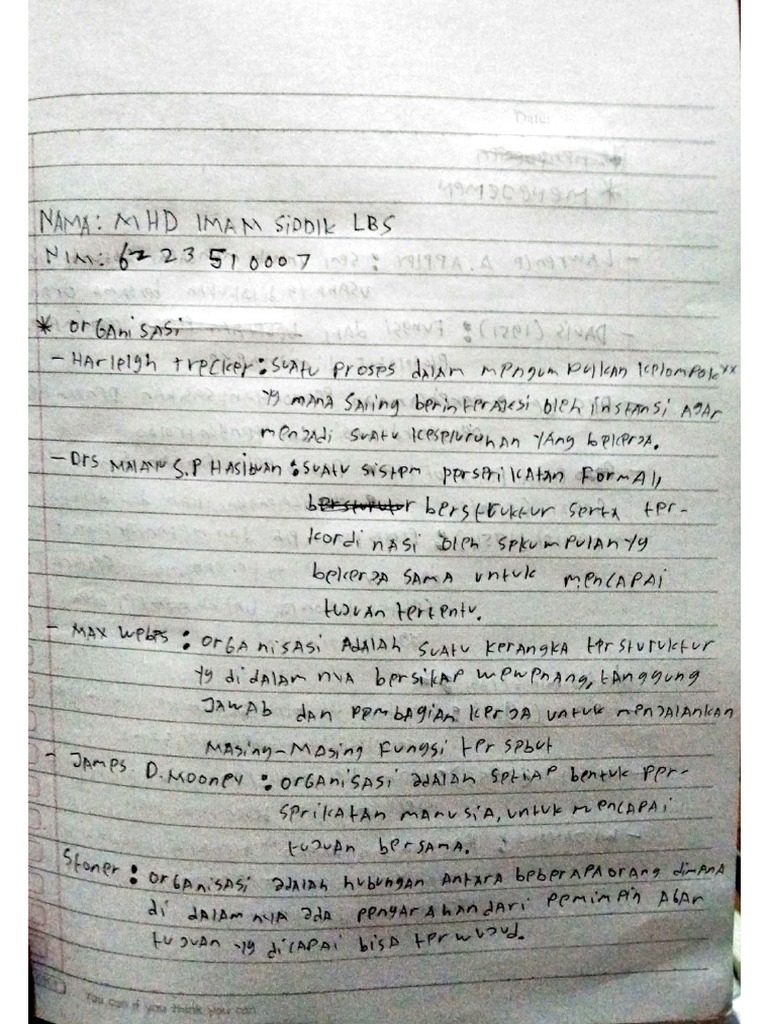 Date:
NAMA: MHD IMAM SIDDIK LBS
NIM: 62 23 510007
* ORGANISASI
- Harleigh trecker: suatu proses dalam mengumpulkan kelompok"
yg mana saling berinteraksi oleh instansi agar
menjadi suatu keseluruhan yang bekerja.
- Drs MALAYU S.P HASIBUAN: suatu sistem perserikatan Formal,
berstruktur serta ter-
kordinasi oleh sekumpulan yg
bekerja sama untuk mencapai
tujuan tertentu.
- MAX Weber: organisasi adalah suatu kerangka tersturuktur
yg didalam nya bersikap wewenang, tanggung
Jawab dan pembagian kerja untuk menjalankan
Masing-Masing Fungsi tersebut
- James D. Mooney: organisasi adalah setiap bentuk per-
serikatan manusia, untuk mencapai
tujuan bersama.
Stoner: organisasi adalah hubungan antara beberapa orang dimana
di dalam nya ada pengarahan dari pemimpin agar
tujuan yg dicapai bisa terwujud.
You can if you think you can